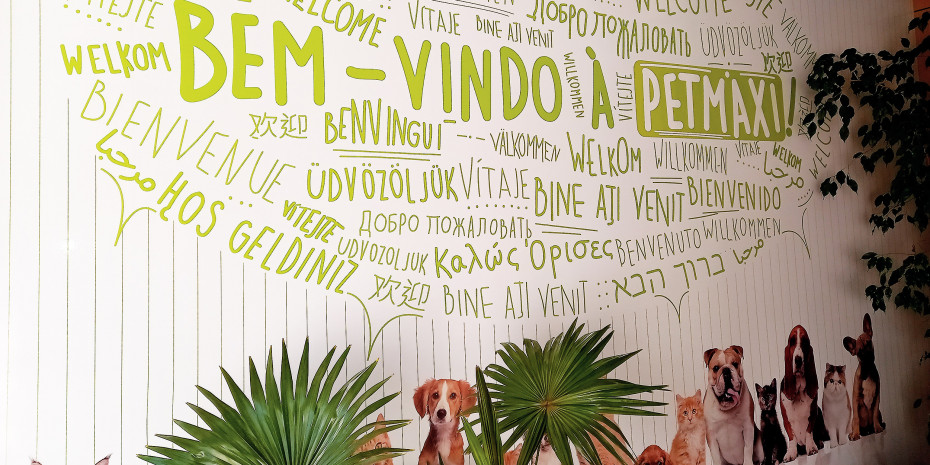 VÍTEJTE WELCOME WELCOME VÍTAJTE BINE AJI VENIT ДОБРО ПОЖАЛОВАТЬ WELCOME VÍTEJTE
WELKOM BEM-VINDO À PETMAXI! ÜDVÖZÖLJÜK 欢迎
WILLKOMMEN VÍTEJTE
BIENVENUE 欢迎 BENVINGUI VÄLKOMMEN WELKOM WILLKOMMEN VITAJE WELKOM WELCOME
مرحبا ÜDVÖZÖLJÜK VÍTAJE BINE AJI VENIT BIENVENIDO مرحبا
HOŞ GELDINIZ VÍTEJTE ДОБРО ПОЖАЛОВАТЬ
UDVOZOLJUK Καλώς Όρισες BENVENUTO WILLKOMMEN
欢迎 BINE AJI VENIT ברוך הבא مرحبا